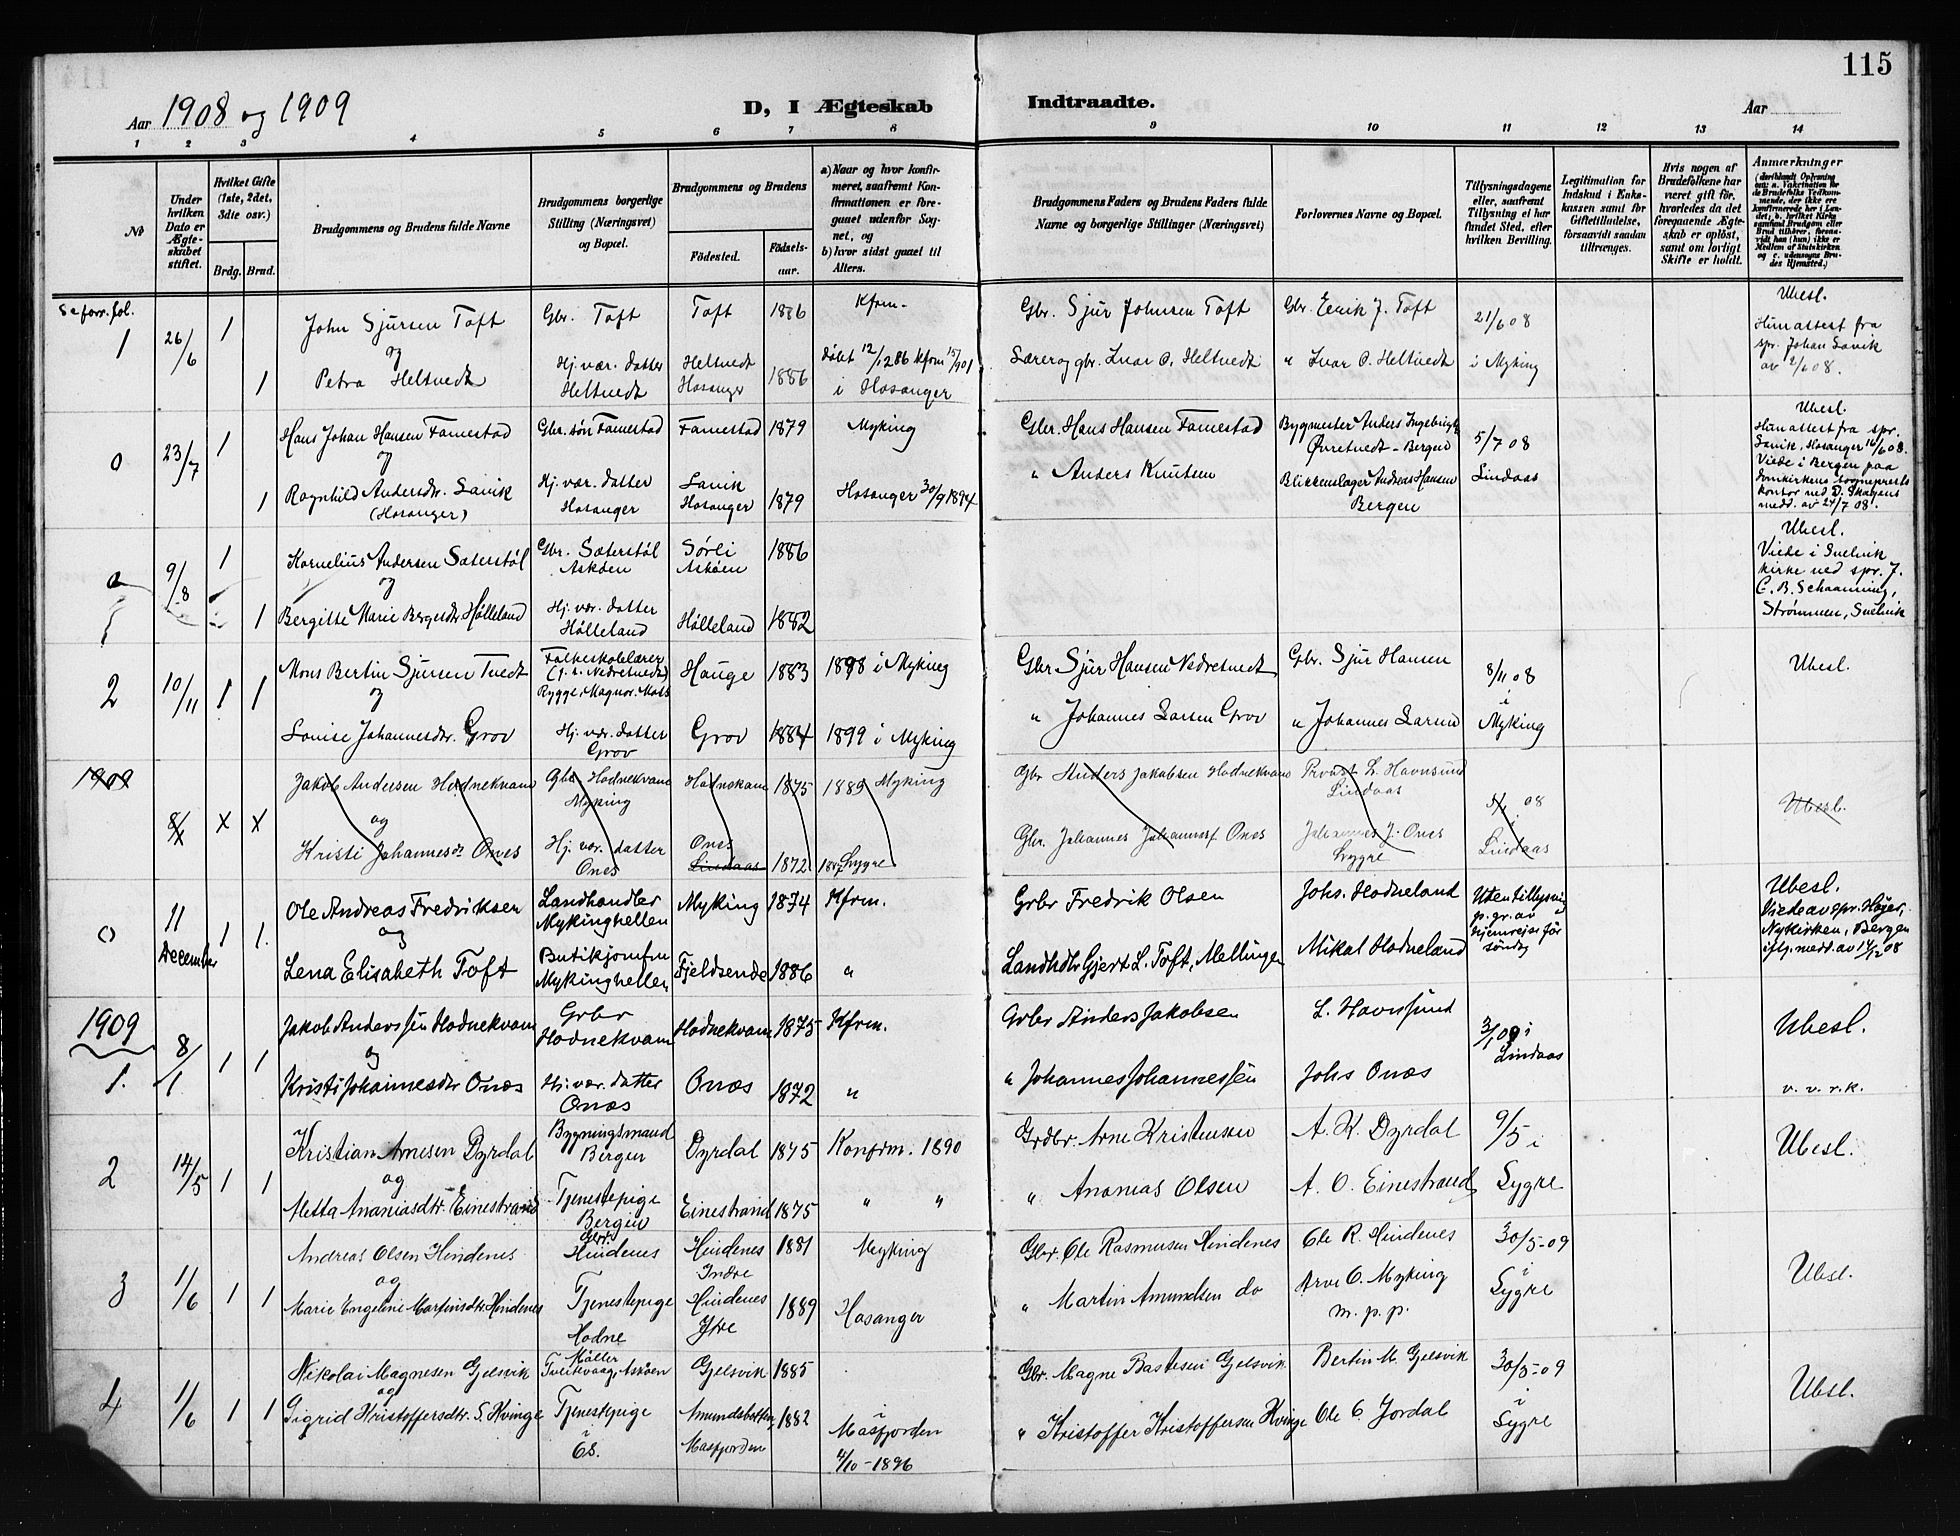 115
Aar 1908 og 1909
D, I Ægteskab
Indtraadte.
Aar
1 2 3 4 5 6 7 8 9 10 11 12 13 14
No
Under hvilken Dato er Ægteskabet stiftet.
Hvilket Gifte (1ste, 2det, 3die osv.)
Brdg. Brud.
Brudgommens og Brudens fulde Navne
Brudgommens borgerlige Stilling (Næringsvei) og Bopæl.
Brudgommens og Brudens
Fødested. Fødselsaar.
a) Naar og hvor konfirmeret, saafremt Konfirmationen er foregaaet udenfor Sognet, og
b) hvor sidst gaaet til Alters.
Brudgommens Faders og Brudens Faders fulde Navne og borgerlige Stillinger (Næringsvei)
Forlovernes Navne og Bopæl.
Tillysningsdagene eller, saafremt Tillysning ei har fundet Sted, efter hvilken Bevilling.
Legitimation for Indskud i Enkekassen samt for Giftetilladelse, forsaavidt saadan tiltrænges.
Hvis nogen af Brudefolkene har været gift før, hvorledes da det foregaaende Ægteskab er opløst, samt om lovligt Skifte er holdt.
Anmærkninger
Se forr. fol.
1 26/6 1 John Sjursen Toft Gbr. Toft Toft 1886 Kfrm. Gbr. Sjur Johnsen Toft Gbr. Eerik J. Toft 21/6 08 Ubesl.
og
1 Petra Heltvedt Hj. vær. datter Heltvedt Heltvedt Hosanger 1886 døbt 12/12 86 Kfrm 15/9 01 i Hosanger Lærer og gbr. Ivar O. Heltvedt " Ivar O. Heltvedt i Myking
Himattest fra spr. Johan Lavik av 2/6 08.
0 23/7 1 Hans Johan Hansen Famestad Gbr. søn Famestad Famestad 1879 Myking Gbr. Hans Hansen Famestad Bygmester Anders Øvretvedt - Bergen 5/7 08 Ubesl.
og
1 Ragnhild Andersdr. Lavik (Hosanger) Hj. vær. datter Hosanger Lavik Hosanger 1879 Hosanger 30/9 1894 " Anders Knutsen Blikkenslager Andreas Hansen Bergen Lindaas
Himattest fra spr. Lavik, Hosanger 16/6 08. Viede i Bergen paa Domkirkens sogneprests kontor ved D. Skagens medd. av 24/7 08.
9/8 1 Kornelius Andersen Sæterstøl Gbr. Sæterstøl Askøen Sørli Askøen 1886 Ubesl.
og
1 Bergitte Marie Bergesdtr. Hølleland Hj. vær. datter Hølleland Hølleland 1882
Viede i Svelvik kirke ved spr. J. C. B. Schaanning, Strømmen, Svelvik
2 10/11 1 1 Mons Bertin Sjursen Tvedt Folkeskolelærer Rygge, Magnor, Moss Hauge 1883 1898 i Myking Gbr Sjur Hansen Nedretvedt Gbr. Sjur Hansen 8/11 08 Ubesl.
og
i
Lovise Johannesdr. Grov Hj. vær. datter Grov Grov 1884 1899 i Myking " Johannes Larsen Grov " Johannes Larsen Myking
1908
8/1 x x Jakob Andersen Hodnekvam Gbr Hodnekvam Myking Hodnekvam 1875 1889 Myking Gbr Anders Jakobsen Hodnekvam Provst L. Havnsund Lindaas 08 Ubesl.
og
Kristi Johannesdr Onæs Hj. vær. datter Onæs Onæs Lindaas 1872 Lygre Gbr. Johannes Johannesf. Onæs Johannes J. Onæs Lygre Lindaas
0 11 December 1 1 Ole Andreas Fredriksen Landhandler Mykinghellen Myking 1874 Kfrm. Grbr Fredrik Olsen Johs. Hodneland Uten tillysning p. gr. av hjemreise før søndag Ubesl.
og
Lena Elisabeth Toft Butikjomfru Mykinghellen Fjeldsende 1886 " Landhdlr Gjert L. Toft, Mellingen Mikal Hodneland
Viede av spr. Høyer, Nykirken, Bergen iflg. medd. av 14/12 08
1909
1. 8/1 1 1 Jakob Anderssøn Hodnekvam Grbr Hodnekvam Hodnekvam 1875 Kfrm. Grbr Anders Jakobsen L. Havnsund 3/1 09 i Lindaas Ubesl.
og
Kristi Johannesdtr Onæs Hj. vær. datter Onæs Onæs 1872 " " Johannes Johannessøn Johs Onæs v. v. r. k.
2 14/5 1 1 Kristian Arnesen Dyrdal Bygningsmand Bergen Dyrdal 1875 Konfrm. 1890 Grdbr. Arne Kristensen A. K. Dyrdal 9/5 i Ubesl.
og
Metta Ananiasdtr. Einestrand Tjenestepige Bergen Einestrand 1875 " " " Ananias Olsen A. O. Einestrand Lygre
3 1/6 1 1 Andreas Olsen Hindenes Gbr. Hindenes Hindenes Indre 1881 Myking Gbr. Ole Rasmusen Hindenes Ole R. Hindenes 30/5-09 Ubesl.
og
i
Marie Engeline Martinsdtr. Hindenes Tjenestepige Hodne Hindenes Ytre 1889 Hosanger " Martin Amundsen do Arve O. Myking m. p. p. Lygre
4 1/6 1 1 Nikolai Magnesen Gjelsvik Møller Tveitevaag, Askøen Gjelsvik 1885 Gbr. Magne Bastesen Gjelsvik Bertin M. Gjelsvik 30/5-09 Ubesl.
og
i
Sigrid Kristoffersdtr. S. Kvinge Tjenestepige i Es. Amundsbotten Masfjorden 1882 i Masfjorden 4/10-1896 " Kristoffer Kristoffersen Kvinge Ole O. Jordal Lygre